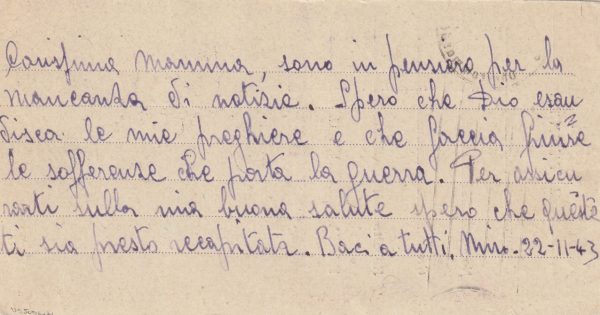 Carissima Mamma, sono in pensiero per la
mancanza di notizie. Spero che Dio esau
disca le mie preghiere e che faccia finire
le sofferenze che porta la guerra. Per assicu
rarti sulla mia buona salute spero che queste
ti sia presto recapitata. Baci a tutti. 22-11-43